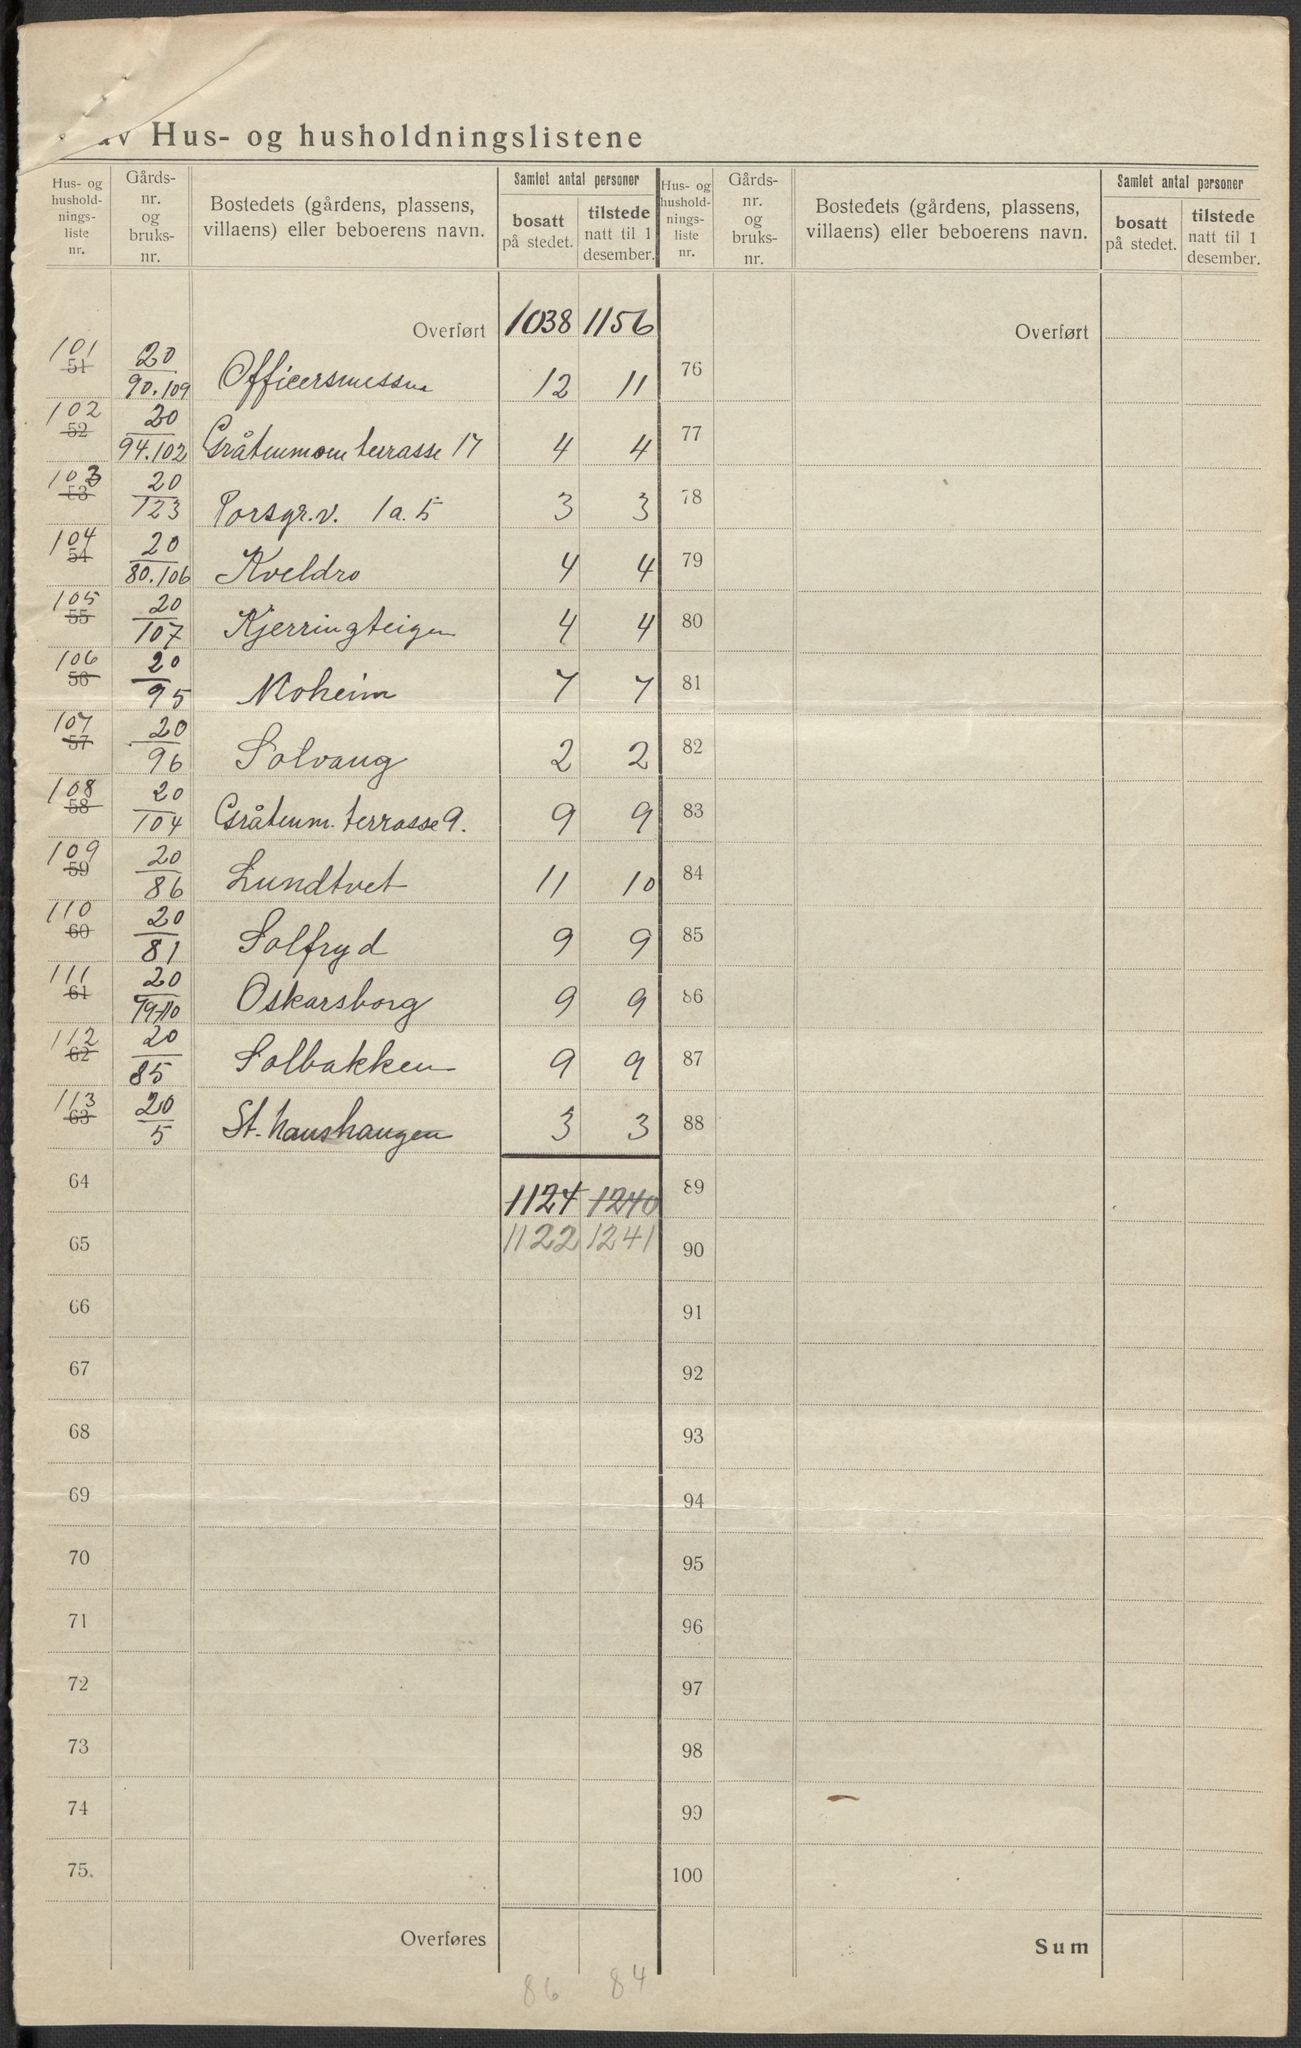 av Hus- og husholdningslistene
Hus- og husholdningsliste nr.
Gårds-nr. og bruks-nr.
Bostedets (gårdens, plassens, villaens) eller beboerens navn.
Samlet antal personer
bosatt på stedet.
tilstede natt til 1 desember.
Hus- og husholdningsliste nr.
Gårds-nr. og bruks-nr.
Bostedets (gårdens, plassens, villaens) eller beboerens navn.
Samlet antal personer
bosatt på stedet.
tilstede natt til 1 desember.
Overført 1038 1156 Overført
101 51 20/90.109 Officersmessen 12 11 76
102 52 20/94.102 Gråtenmoen terrasse 17 4 4 77
103 53 20/123 Porsgr.v. 1a.5 3 3 78
104 54 20/80.106 Kveldro 4 4 79
105 55 20/107 Kjerringteigen 4 4 80
106 56 20/95 Moheim 7 7 81
107 57 20/96 Solvang 2 2 82
108 58 20/104 Gråtenm. terrasse 9. 9 9 83
109 59 20/86 Lundtvet 11 10 84
110 60 20/81 Solfryd 9 9 85
111 61 20/79-110 Oskarsborg 9 9 86
112 62 20/85 Solbakken 9 9 87
113 63 20/5 St. hanshaugen 3 3 88
64 1124 1240 89
65 1122 1241 90
66 91
67 92
68 93
69 94
70 95
71 96
72 97
73 98
74 99
75. 100
Overføres Sum
86 84